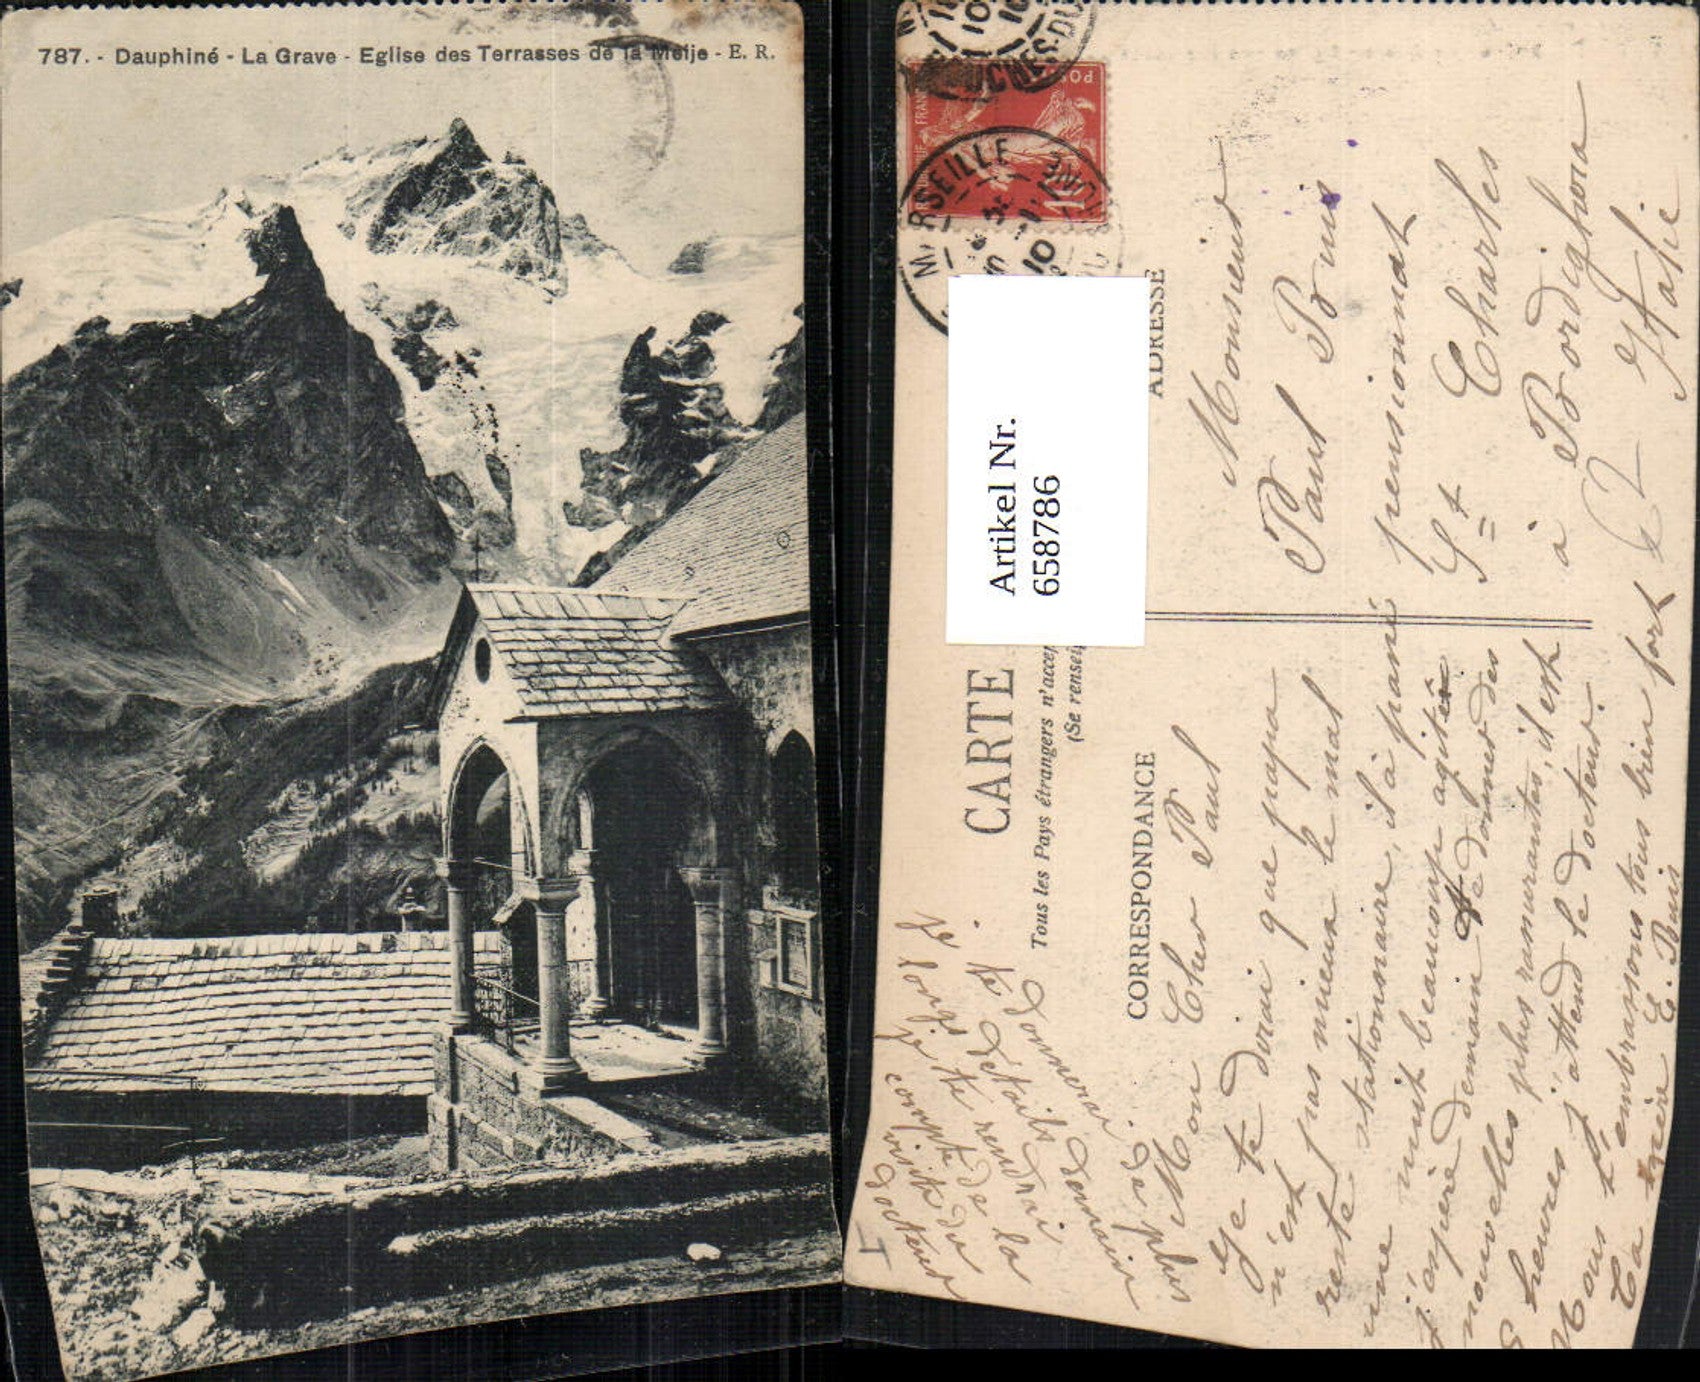 787. - Dauphiné - La Grave - Eglise des Terrasses de la Meije - E. R.
MARSEILLE
10
BOUCHES-DU
POSTES
FRANÇ
10
Artikel Nr.
6587786
CARTE
Tous les Pays étrangers n'accep
(Se rensei
CORRESPONDANCE
ADRESSE
Monsieur
Paul Buis
pensionnat
St Charles
à Bordighera
Italie
Mon Cher Paul
Je te dirai que papa
n'est pas mieux le mal
reste stationnaire, il à passé
une nuit beaucoup agitée
j'espère demain te donner des
nouvelles plus rassurantes, il est
8 heures j'attend le docteur.
Nous t'embrassons tous bien fort
Ta mère E. Buis
je te donnerai demain
de plus
détails
je te rendrai
compte de la
visite du
docteur